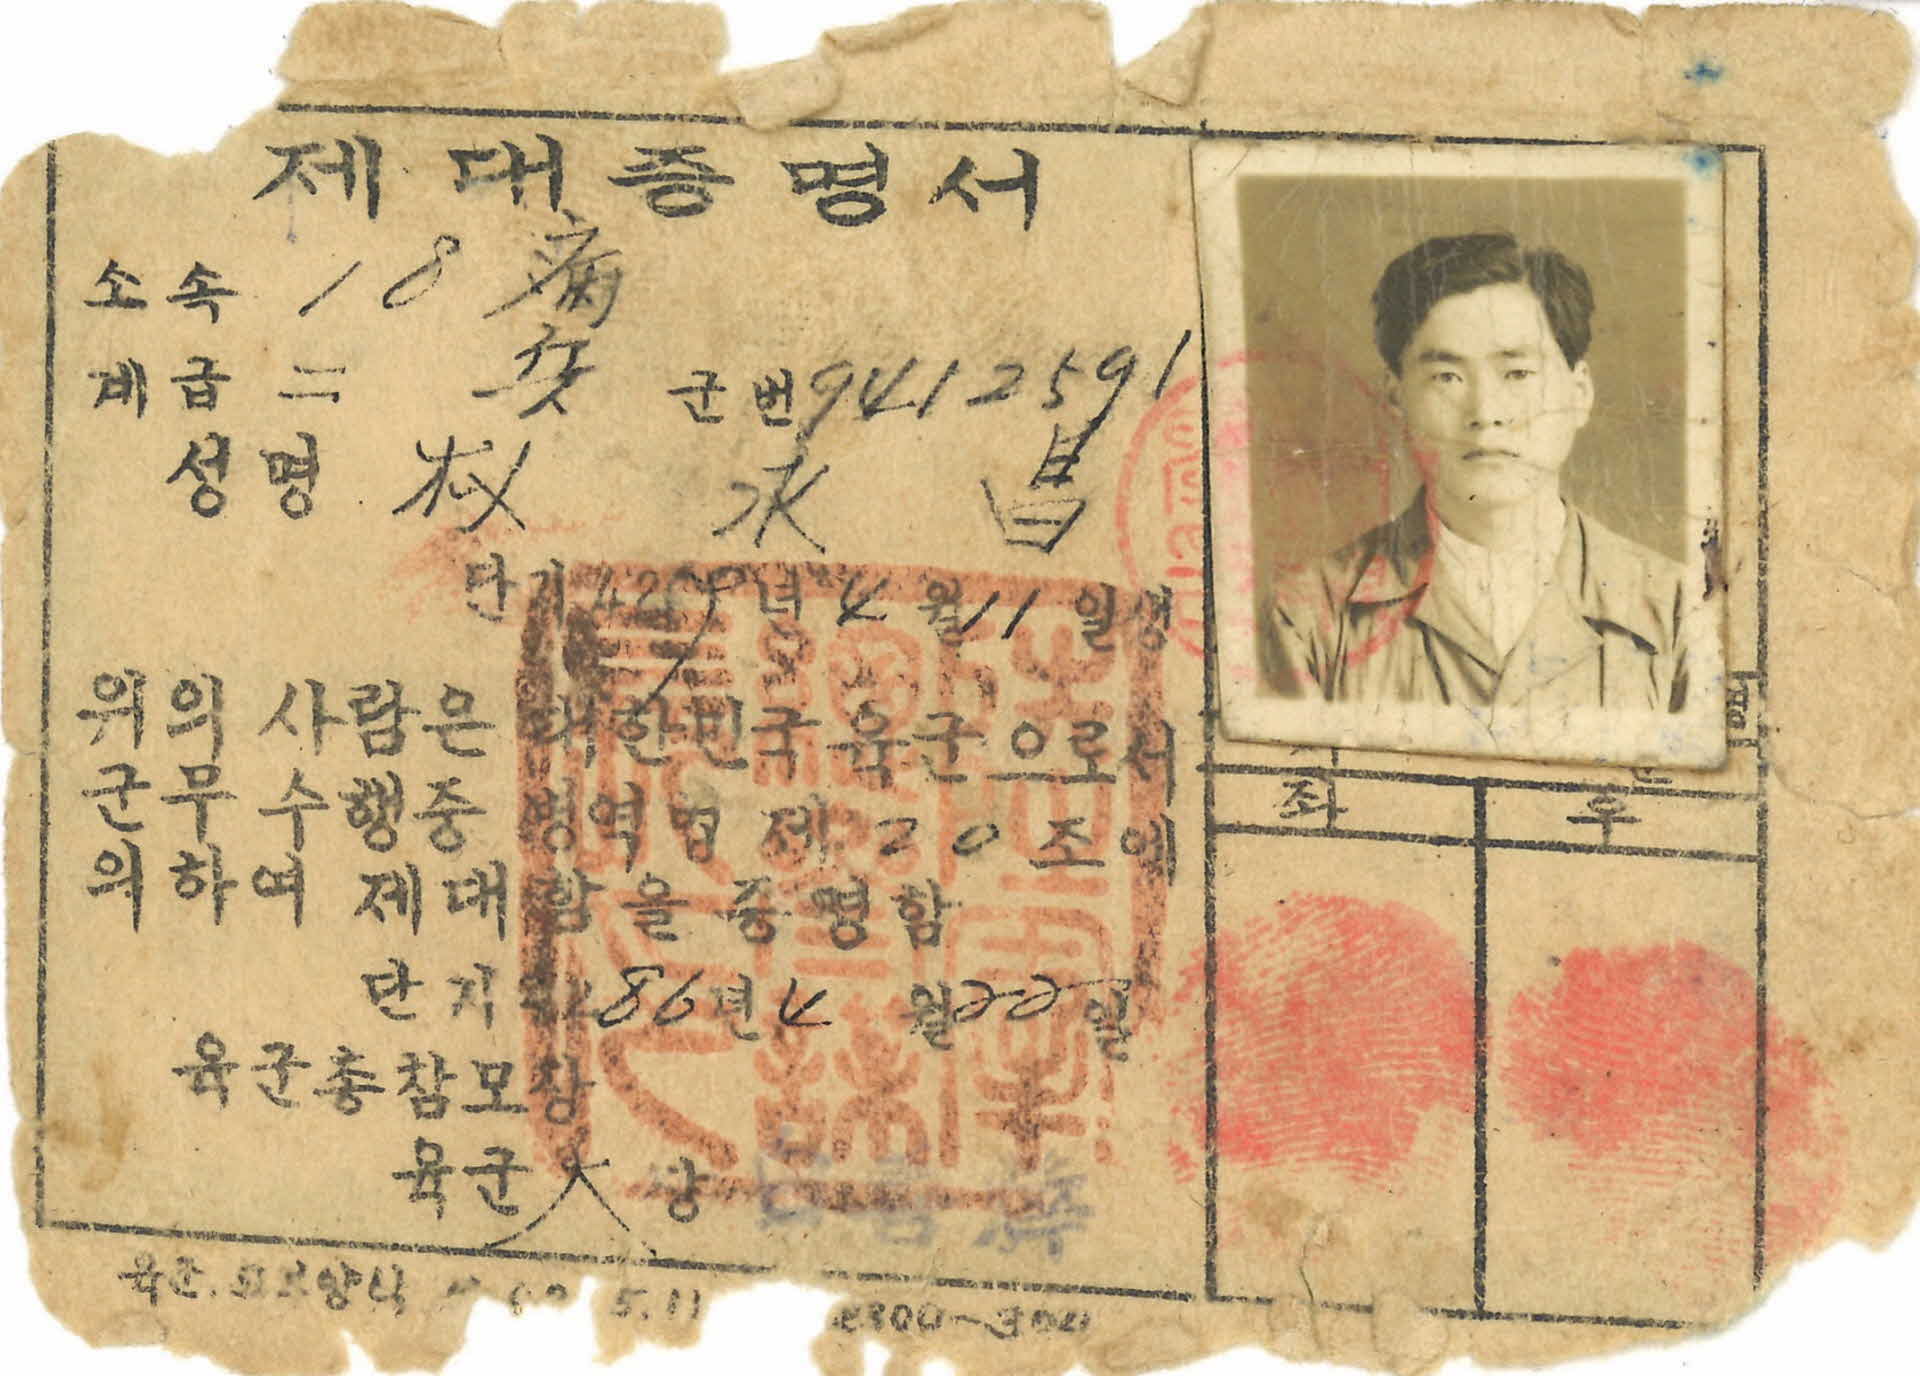 제대증명서
소속 18 病
계급 二 兵 군번 9412591
성명 权 永 昌
단기 4209년 4월 11일생
위의 사람은 대한민국 육군으로서
군무 수행중 병역법 제 20 조에
의하여 제대함을 증명함
단기 4286년 4월 22일
육군총참모장
육군大장
좌 우